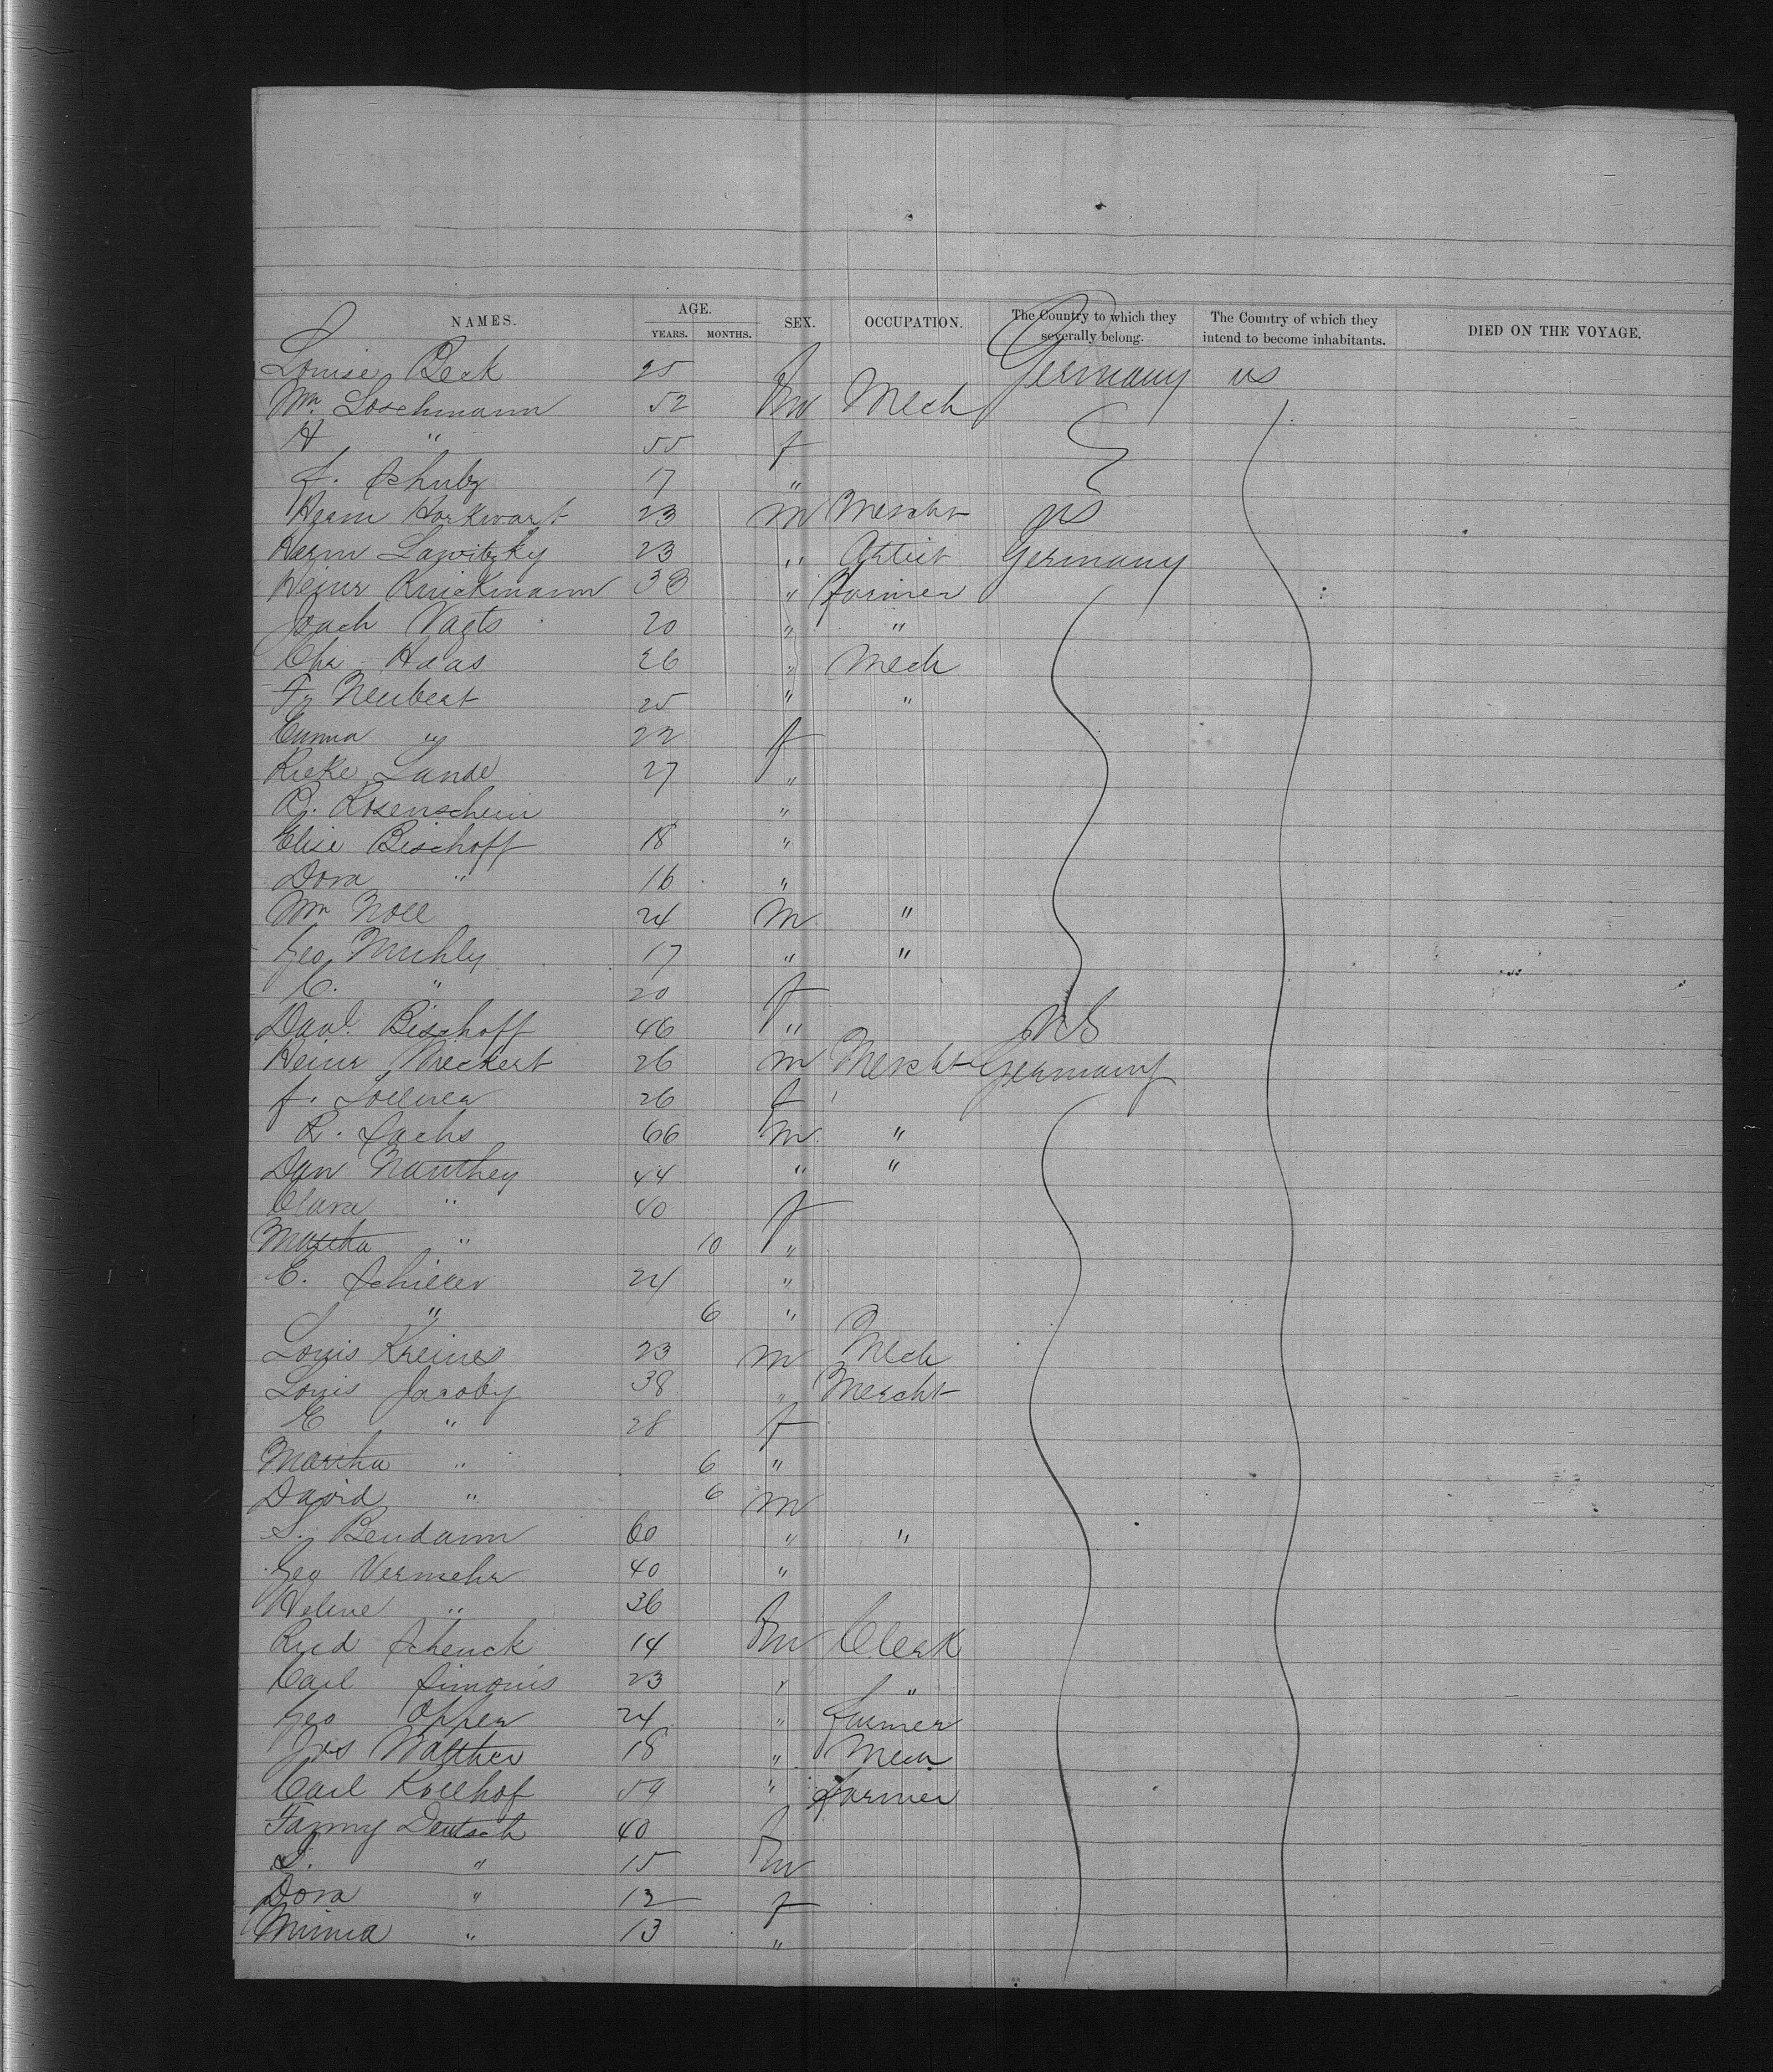 NAMES. AGE. YEARS. MONTHS. SEX. OCCUPATION. The Country to which they severally belong. The Country of which they intend to become inhabitants. DIED ON THE VOYAGE.
Louise Beck 25 f Germany us
Wm Loschmann 52 m Mech
H " 55 f
f. Schulz 17 "
Herm Horkwart 23 m Mercht us
Herm Lawitzky 23 " Artist Germany
Heinr Knickmann 38 " Farmer
Joach Vagts 20 " "
Chr Haas 26 " Mech
Fr Neubert 25 " "
Emma " 22 f
Rieke Lande 27 "
R. Rosenschein "
Elise Bischoff 18 "
Dora " 16 "
Wm Noll 24 m "
Geo Muhly 17 " "
C. " 20 f
Davd. Bischoff 46 " US
Heinr Meckert 26 m Mercht Germany
f. Loellner 26 f
R. Sachs 66 m "
Dan Nanthey 44 " "
Clara " 40 f
Martha " 10 "
C. Schiller 24 "
" 6 "
Louis Kreines 23 m Mech
Louis Jacoby 38 " Mercht
E " 28 f
Martha " 6 "
David " 6 m
S. Bendann 60 " "
Geo Vermehr 40 "
Helene " 36 f
Rud Schenck 14 m Clerk
Carl Simonis 23 " "
Geo Opper 24 " farmer
Jos Walther 18 " Mech
Carl Kollhof 59 " farmer
Fanny Deutsch 40 f
S. " 15 m
Dora " 12 f
Minna " 13 "